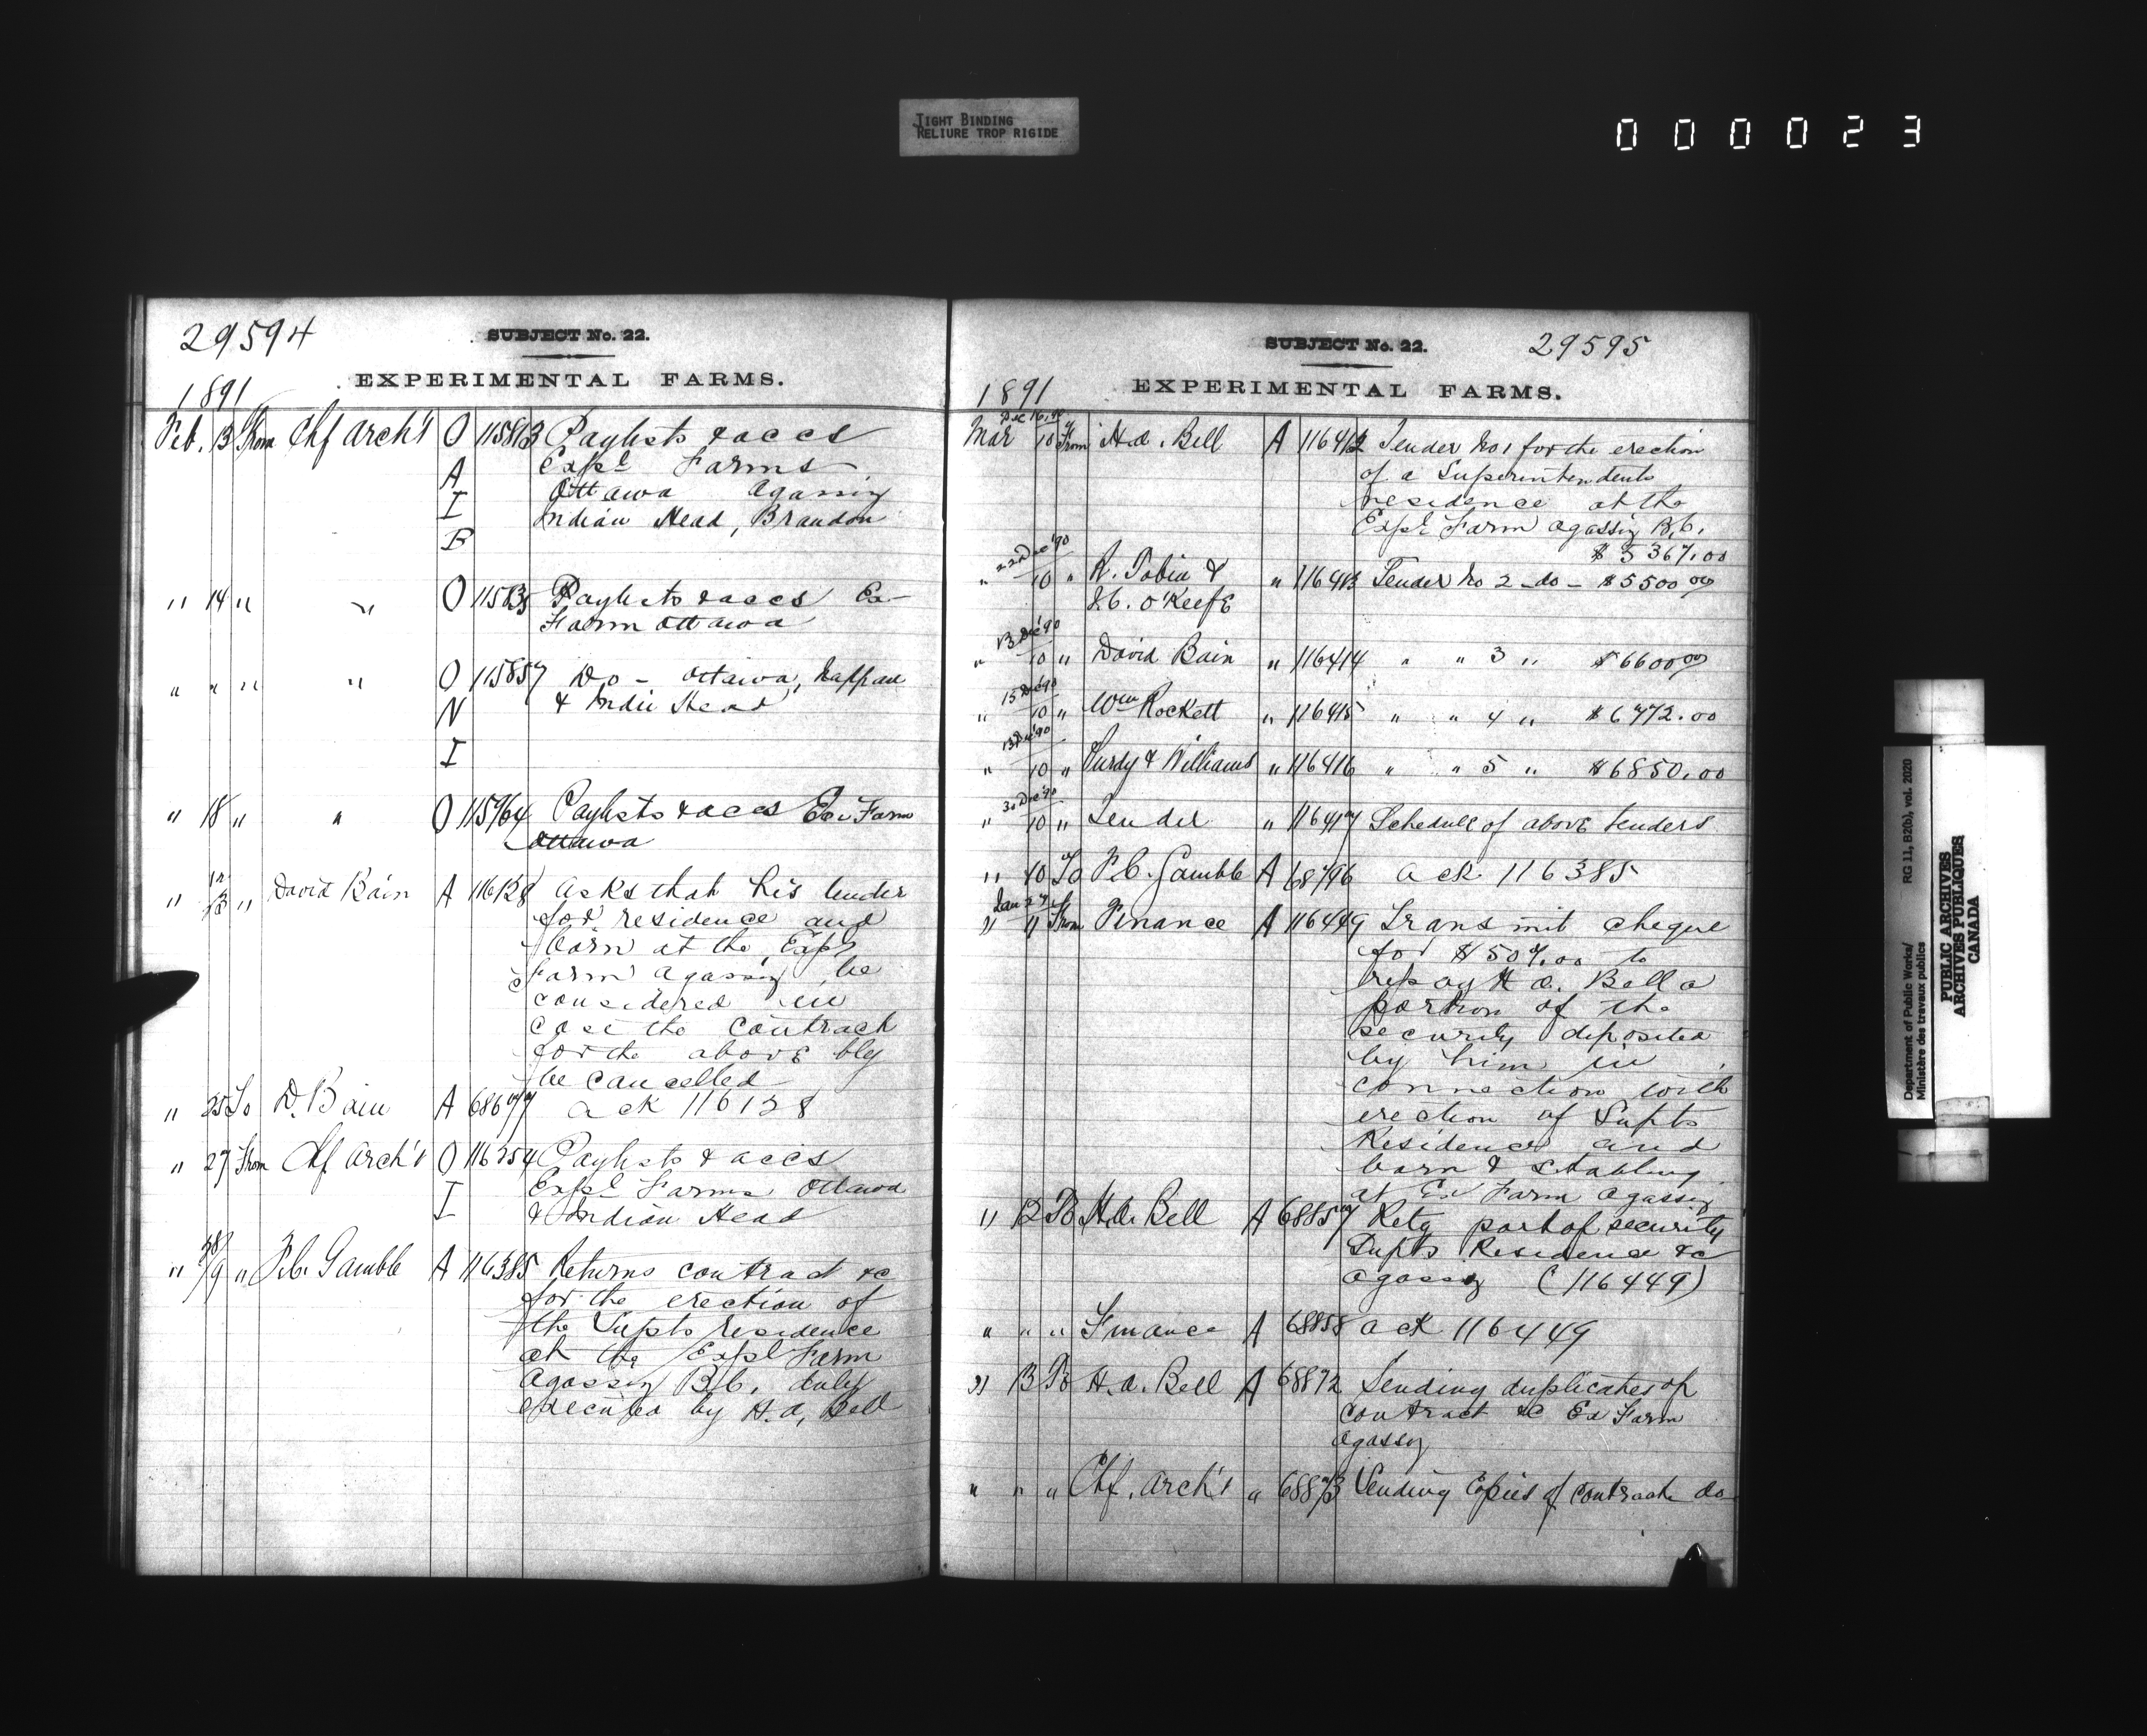 TIGHT BINDING
RELIURE TROP RIGIDE
000023
29594
SUBJECT No. 22.
EXPERIMENTAL FARMS.
1891
Feb. 13 From Chf Arch't O 115813 Paylists & accs
A Expl Farms
I Ottawa Agassiz
B Indian Head, Brandon
" 14 " " O 11583 Paylists & accs Ex
Farm Ottawa
" " " " O 115857 Do - Ottawa, Nappan
N & Indin Head
I
" 18 " " O 115964 Paylists & accs Ex Farm
Ottawa
" " David Bain A 116128 Asks that his tender
for residence and
barn at the Expl
Farm Agassiz be
considered in
case the contract
for the above bldg
be cancelled
" 25 To D. Bain A 68677 Ack 116128
" 27 From Chf Arch't O 116354 Paylists & accs
I Expl Farms Ottawa
& Indian Head
" 28/9 " F.C. Gamble A 116385 Returns contract &c
for the erection of
the Supts residence
at the Expl Farm
Agassiz B.C. duly
executed by H.A. Bell
SUBJECT No. 22.
29595
EXPERIMENTAL FARMS.
1891
Dec 16, 90
Mar 10 From H.A. Bell A 116412 Tender No 1 for the erection
of a Superintendents
residence at the
Expl Farm Agassiz B.C.
$5367.00
22 Dec '90
" 10 " R. Tobin & " 116413 Tender No 2 - do - $5500.00
J.C. O'Keefe
13 Dec '90
" 10 " David Bain " 116414 " " 3 " $6600.00
15 Dec '90
" 10 " Wm Rockett " 116415 " " 4 " $6472.00
13 Dec '90
" 10 " Purdy & Williams " 116416 " " 5 " $6850.00
30 Dec '90
" 10 " Tender " 116417 Schedule of above tenders
" 10 To F.C. Gamble A 68796 Ack 116385
Jan 27
" 11 From Finance A 116449 Transmit cheque
for $507.00 to
repay H.A. Bell a
portion of the
security deposited
by him in
connection with
erection of Supts
Residence and
barn & stabling
at Ex Farm Agassiz
" 12 To H.A. Bell A 68857 Retg part of security
Supts Residence &c
Agassiz (116449)
" " " Finance A 68858 Ack 116449
" 13 To H.A. Bell A 68872 Sending duplicates of
contract &c Ex Farm
Agassiz
" " " Chf. Arch't " 68873 Sending Copies of contracts do
Department of Public Works/ RG 11, B2(b), vol. 2020
Ministère des travaux publics
PUBLIC ARCHIVES
ARCHIVES PUBLIQUES
CANADA